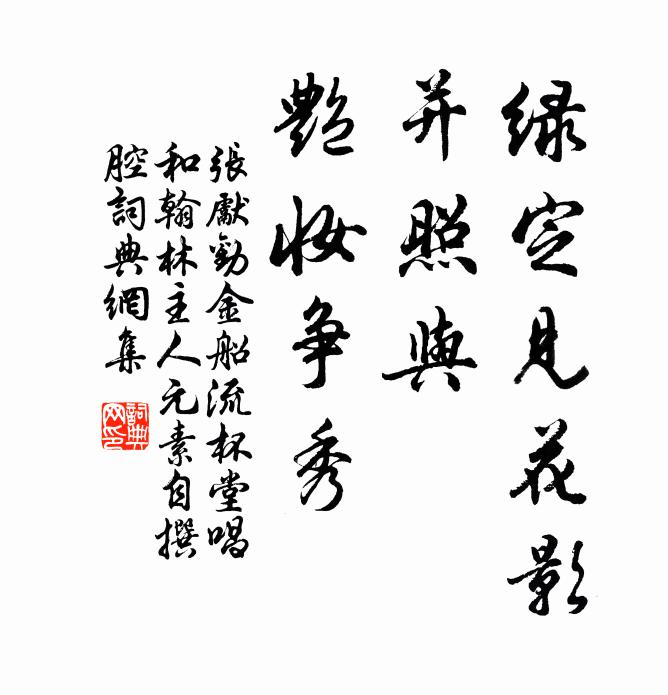 绿定見花影
并照與
艷妝争秀
張獻勸金船流杯堂唱
和翰林主人元素自撰
腔詞典網集
詞典网印